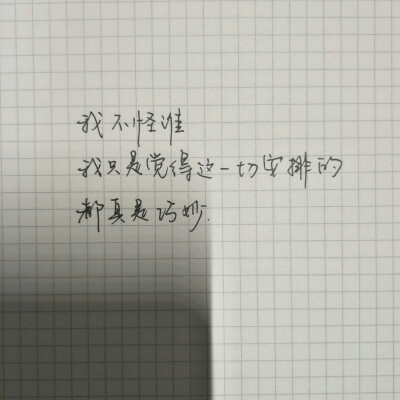 我不怪谁
我只是觉得这一切安排的
都真是巧妙.